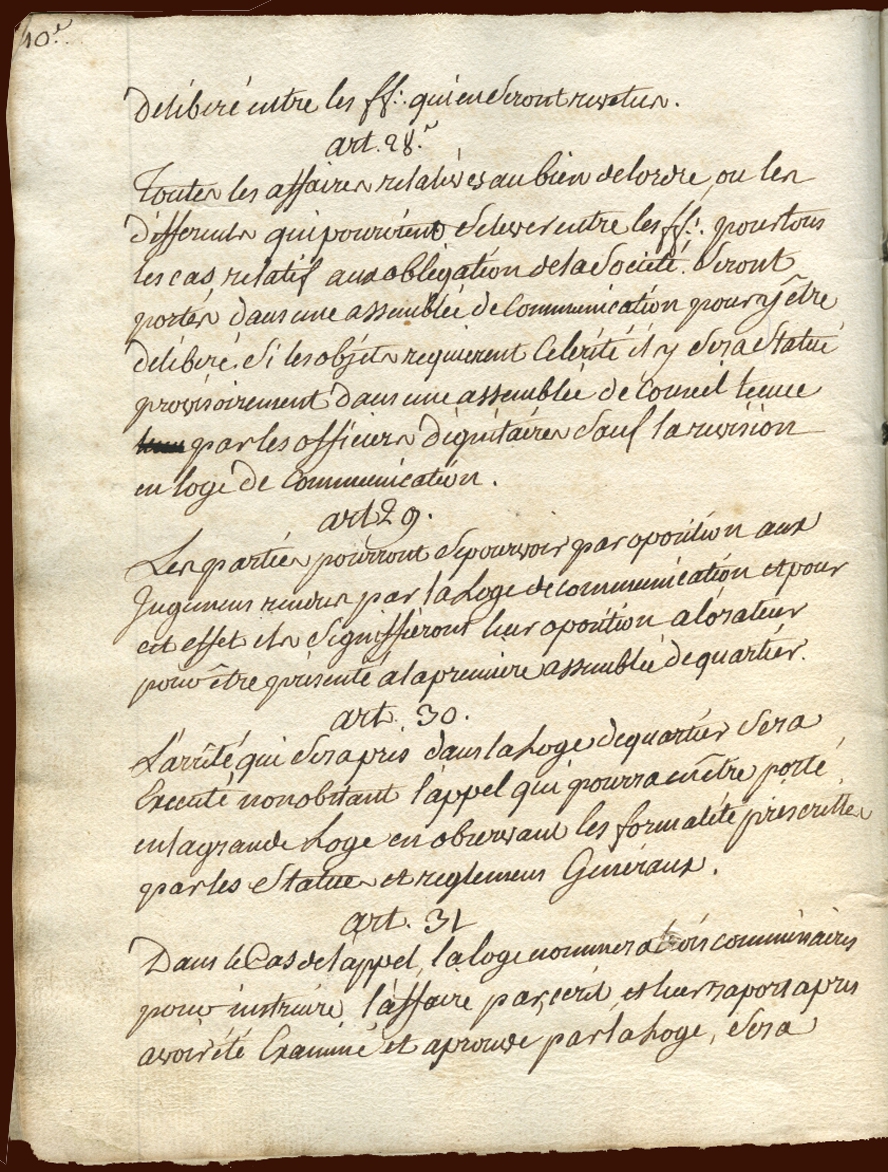 10.e
deliberé entre les ff∴ qui en Seront revetus.
art. 28.e
Toutes les affaires relatives au bien delordre, ou les
differents qui pouroient S'elever entre les ff∴ pour tous
les cas, relatif aux obligation de la Societé. Seront
portés dans une assemblée de Communication pour y être
deliberé. Si les objets requierent Celerité il y Sera Statué
provisoirement dans une assemblée de Conseil tenue
par les officiers dignitaires Sauf la revision
en loge de Communication.
art 29.
Les parties pourront Se pourvoir par oposition aux
Jugemens rendus par la Loge de communication et pour
cet effet ils Signiffieront leur oposition a lórateur
pour être présenté a la premiere assemblée de quartier.
art. 30.
L'arrêté qui Sera pris dans la Loge de quartier Sera
Executé nonobstant l'appel qui pourra en être porté
en la grande Loge en observant les formalité prescrittes
par les Statues et reglemens Generaux.
art. 31
Dans le Cas de lappel, la loge nommera trois commissaires
pour instruire l'affaire par ecrit et leur raport apres
avoir été Examiné et aprouvé par la Loge, Sera